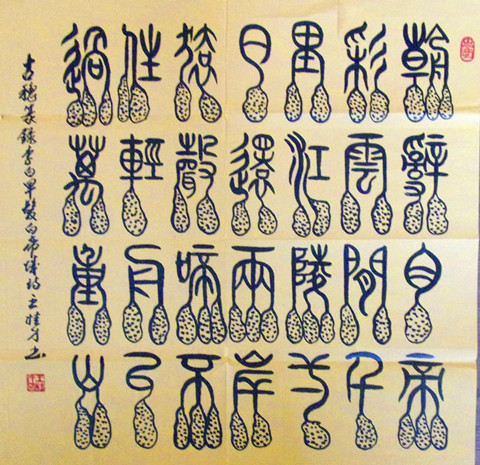 朝辭白帝
彩雲間千
里江陵一
日還兩岸
猿聲啼不
住輕舟已
過萬重山
穗篆錄李白早發白帝城詩王桂才書